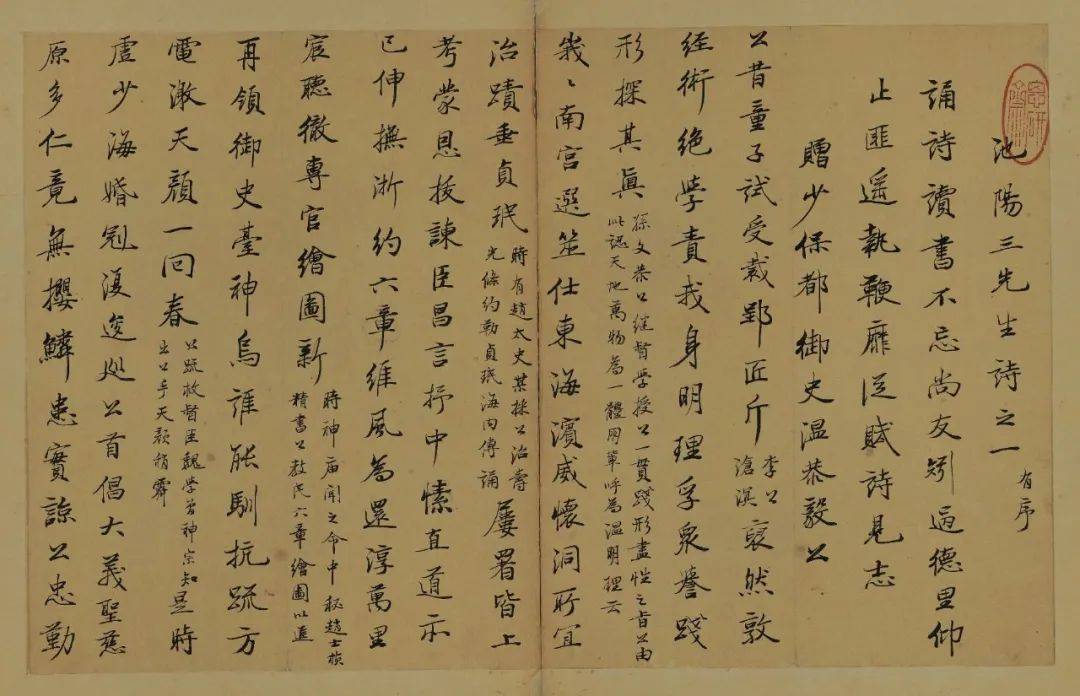 池陽三先生詩之一 有序
誦詩讀書不忘尚友矧過德里仰
止匪遥執鞭靡從賦詩見志
贈少保都御史温恭毅公
公昔童子試受裁郢匠斤 李公滄溟 裒然敦
經術絕學責我身明理孚衆譽踐
形探其眞 孫文恭公繼督學授公一貫踐形盡性之旨公由此認天地萬物為一體同輩呼為温明理云
峩〻南宫選筮仕東海濵威懷洞所宜
治蹟垂貞珉 時有趙太史某採公治壽光條約勒貞珉海内傳誦 屢署皆上
考蒙恩拔諫臣昌言抒中愫直道亦
已伸撫淅約六章維風為還淳萬里
宸聽徹專官繪圖新 時神庙聞之命中秘趙士楨精書公教民六章繪圖以進
再領御史臺神烏誰能馴抗疏方
電激天顔一回春 公疏救督臣魏學曽神宗知是時出公手天顔稍霽
少海婚冠復逡廵公首倡大義聖慈
原多仁竟無攖鱗患實諒公忠勤